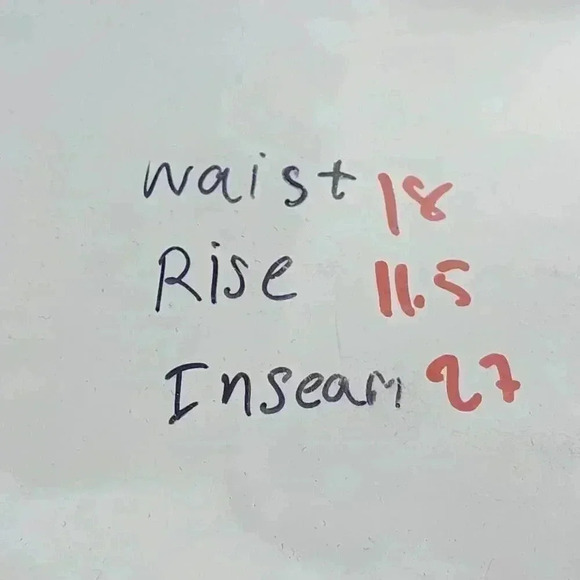 Waist 18
Rise 11.5
Inseam 27